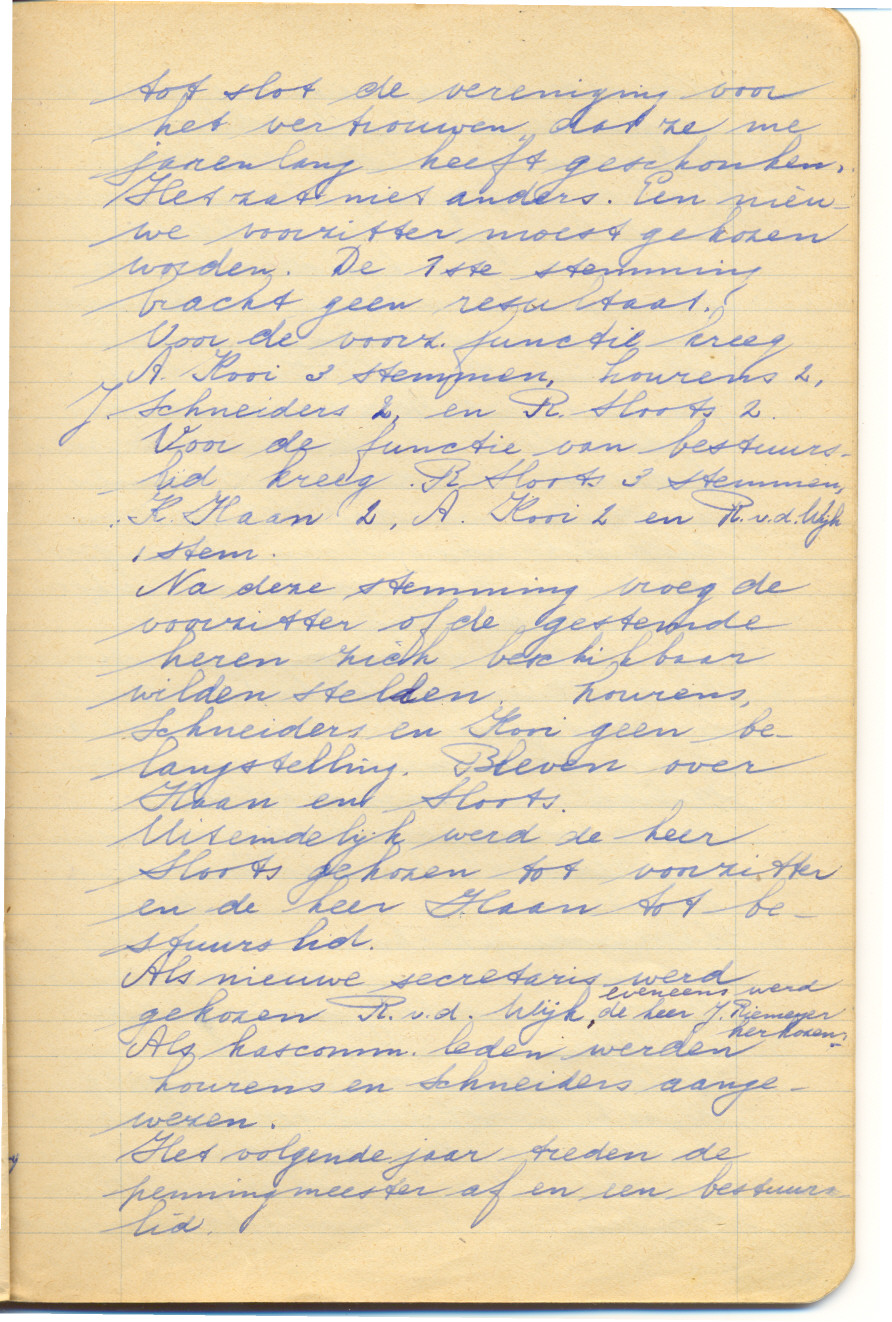 tot slot de vereniging voor
het vertrouwen, dat ze me
jarenlang heeft geschonken.
Het zat niet anders. Een nieu-
we voorzitter moest gekozen
worden. De 1ste stemming
bracht geen resultaat.!
Voor de voorz. functie kreeg
A. Kooi 3 stemmen, Lourens 2,
J. Schneiders 2, en R. Sloots 2.
Voor de functie van bestuurs-
lid kreeg R. Sloots 3 stemmen,
K. Haan 2, A. Kooi 2 en R. v. d. Wijk
1 stem.
Na deze stemming vroeg de
voorzitter of de gestemde
heren zich beschikbaar
wilden stellen. Lourens,
Schneiders en Kooi geen be-
langstelling. Bleven over
Haan en Sloots.
Uitemdelijk werd de heer
Sloots gekozen tot voorzitter
en de heer Haan tot be-
stuurslid.
Als nieuwe secretaris werd
gekozen R. v. d. Wijk, eveneens werd
de heer J. Riemeyer
herkozen.
Als kascomm. leden werden
Lourens en Schneiders aange-
wezen.
Het volgende jaar treden de
penningmeester af en een bestuurs-
lid.